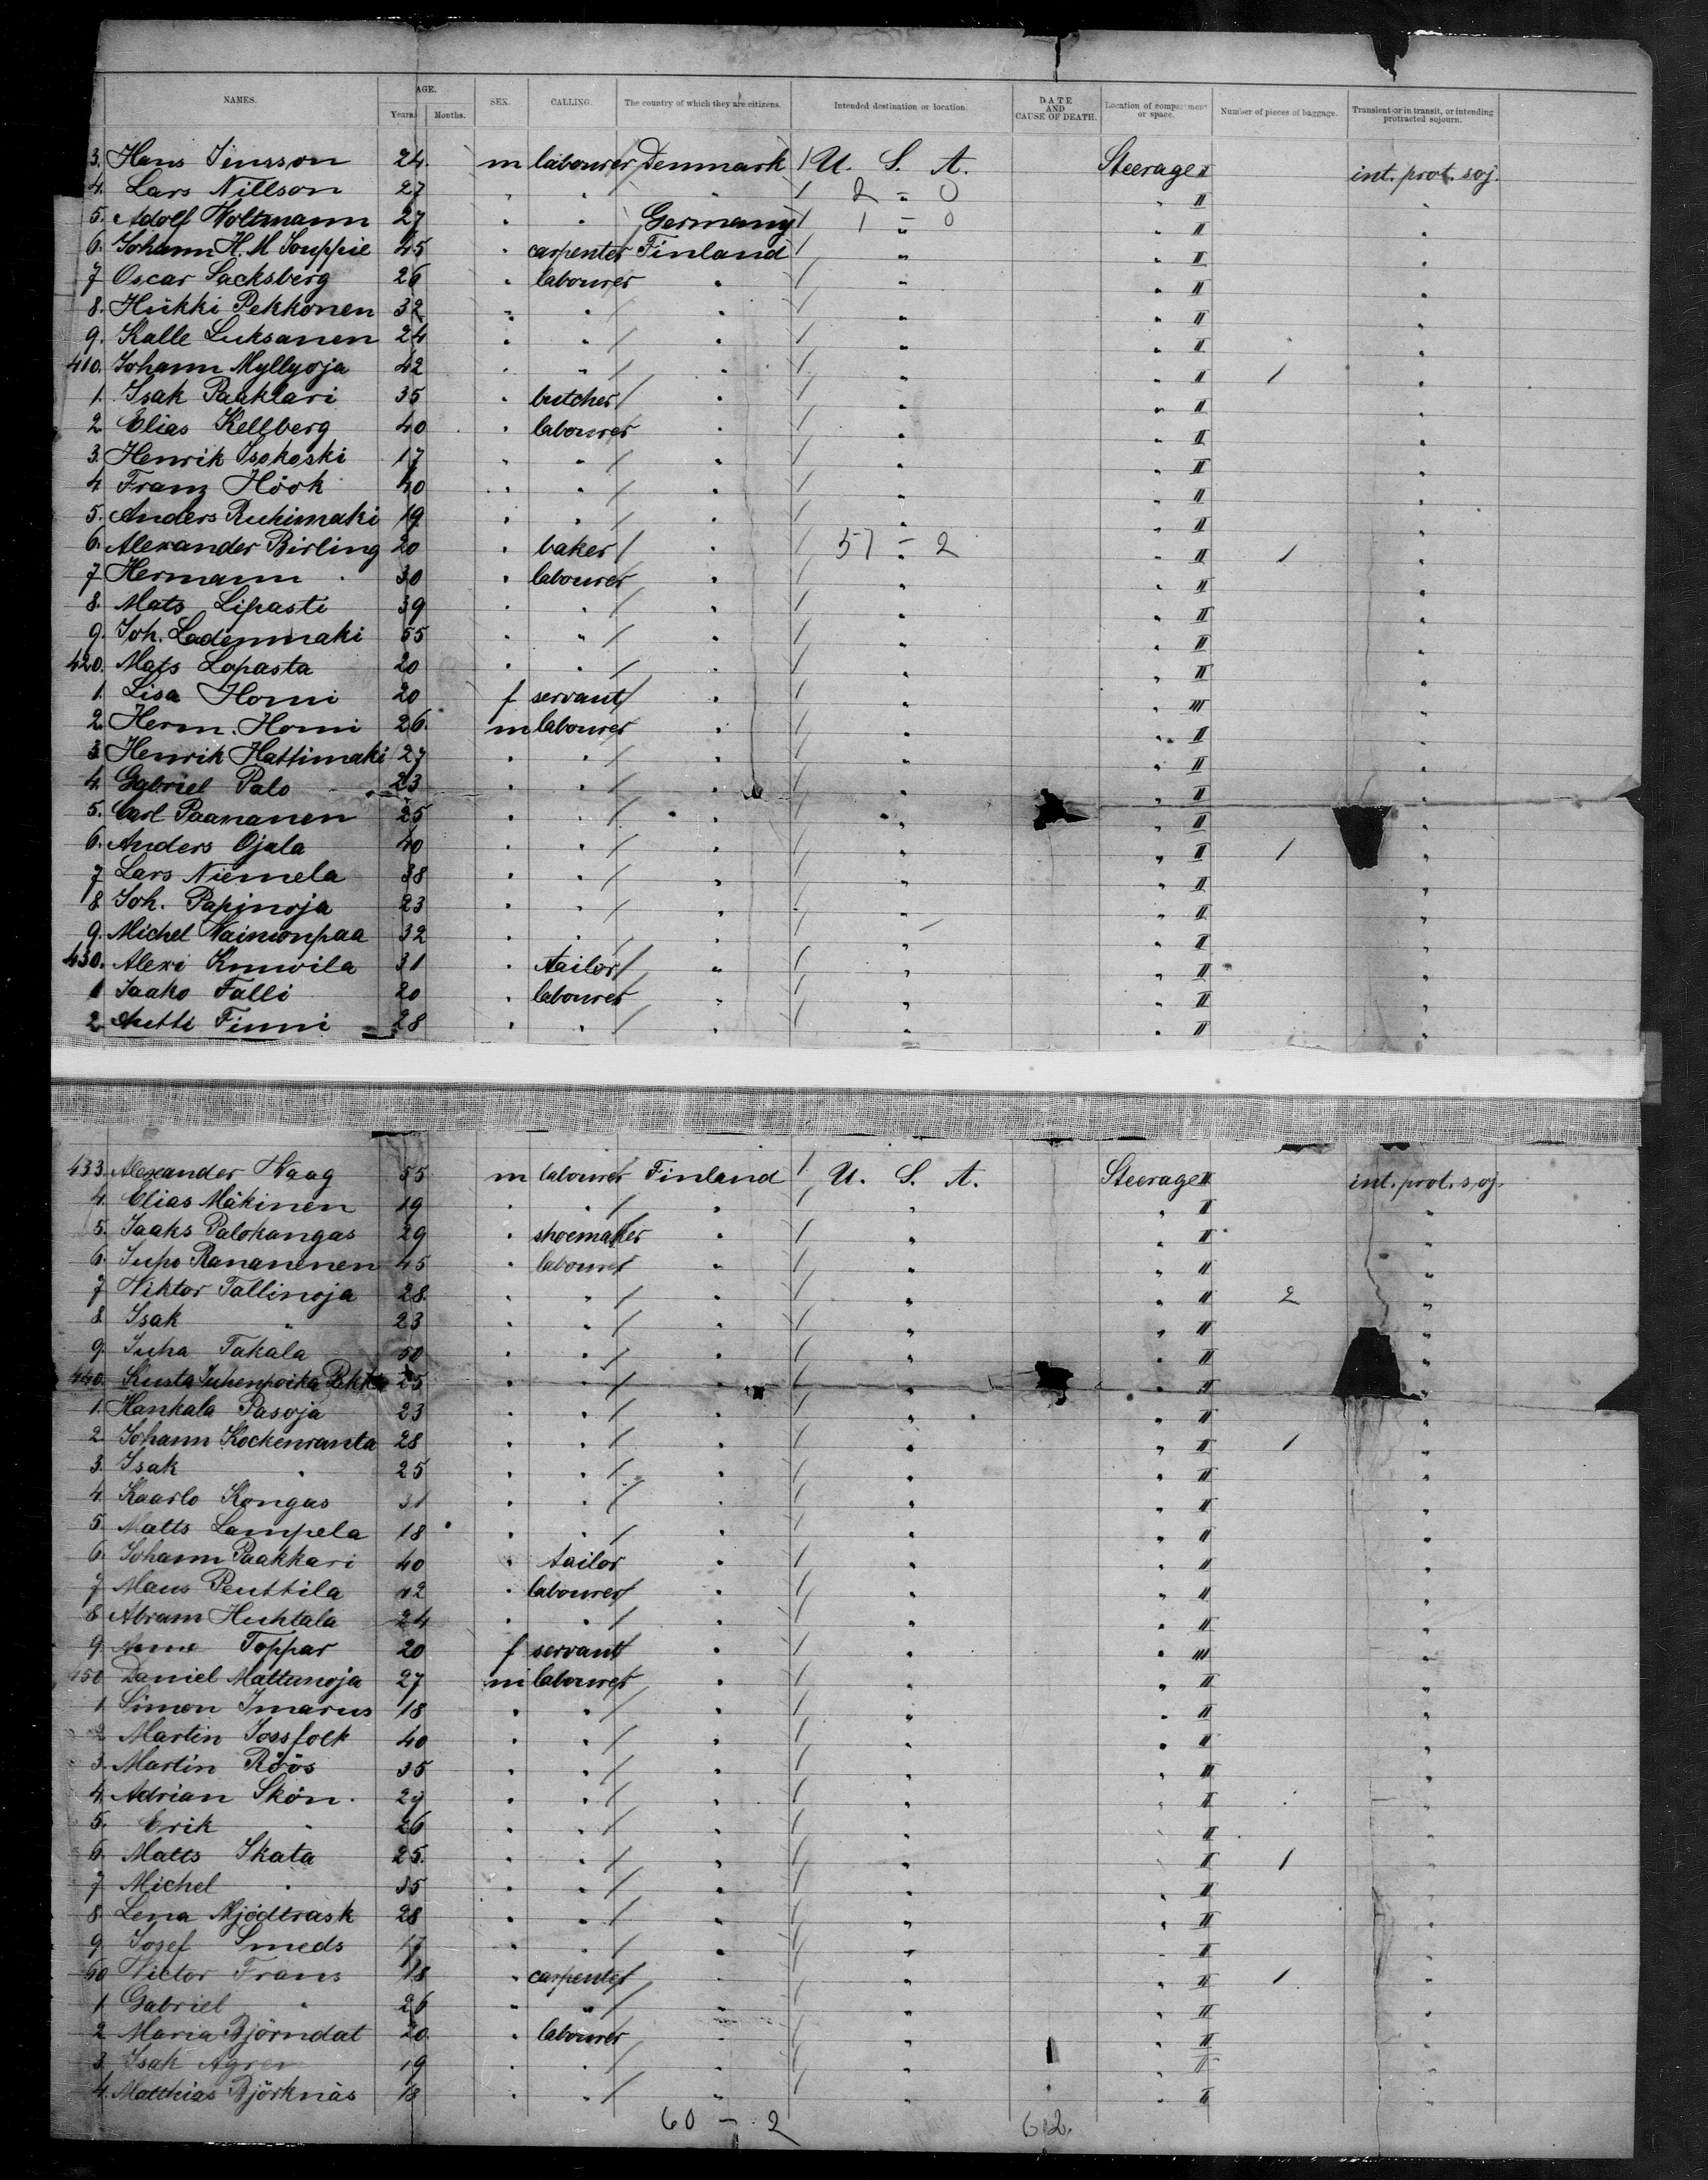 NAMES. AGE. Years. Months. SEX. CALLING. The country of which they are citizens. Intended destination or location. DATE AND CAUSE OF DEATH. Location of compartment or space. Number of pieces of baggage. Transient or in transit, or intending protracted sojourn.
3. Hans Jensson 24. m labourer Denmark / U. S. A. Steerage II int. prot. soj.
4. Lars Nillson 27 " " " / 2 - 0 " II "
5. Adolf Woltmann 27 " " Germany / 1 - 0 " II "
6. Johann H. M Souppie 45 " carpenter Finland / " " II "
7 Oscar Sacksberg 26 " labourer " / " " II "
8. Hükki Pekkonen 32 " " / " / " " II "
9. Kalle Luksanen 24 " " / " / " " II "
410. Johann Myllyoja 42 " " / " / " " II 1 "
1. Isak Paaklari 35 " butcher / " / " " II "
2 Elias Kellberg 40 " labourer " / " " II "
3. Henrik Isokoski 17 " " / " / " " II "
4 Franz Höök 40 " " / " / " " II "
5. Anders Ruhimaki 19 " " / " / " " II "
6. Alexander Birling 20 " baker / " / 57 - 2 " II 1 "
7 Hermann " 30 " labourer " / " " II "
8. Mats Lipasti 39 " " / " / " " II "
9. Joh. Ladenmaki 55 " " / " / " " II "
420. Mats Lopasta 20 " " / " / " " II "
1. Lisa Homi 20 f servant / " / " " III "
2. Herm. Homi 26. m labourer " / " " II "
3 Henrik Hattimaki 27 " " / " / " " II "
4. Gabriel Palo 23 " " / " / " " II "
5. Carl Paananen 25 " " / " / " " II "
6. Anders Ojala 40 " " / " / " " II 1 "
7 Lars Niemela 38 " " / " / " " II "
8 Joh. Papinoja 23 " " / " / " " II "
9. Michel Wainionpaa 32 " " / " / " " II "
430. Alexi Knuvila 31 " tailor / " / " " II "
1 Jaako Falli 20 " labourer " / " " II "
2 Antti Finni 28 " " / " / " " II "
433. Alexander Waag 55 m labourer Finland / U. S. A. Steerage II int. prot. soj.
4. Elias Mäkinen 19 " " / " / " " II "
5. Jaaks Palokangas 29 " shoemaker " / " " II "
6. Jupo Rananenen 45 " labourer " / " " II "
7 Viktor Tallinoja 28. " " / " / " " II 2 "
8. Isak " 23 " " / " / " " II "
9. Juha Takala 50 " " / " / " " II "
440. Kusta Juhenpoika Pekka 25 " " / " / " " II "
1. Hankala Pasoja 23 " " / " / " " II "
2. Johann Kockenranta 28 " " / " / " " II 1 "
3. Isak " 25 " " / " / " " II "
4. Kaarlo Kongas 31 " " / " / " " II "
5. Matts Lampela 18 " " / " / " " II "
6. Johann Paakkari 40 " tailor " / " " II "
7 Maus Penttila 42 " labourer " / " " II "
8 Abram Huhtala 24 " " / " / " " II "
9. Anna Toppar 20 f servant " / " " III "
450 Daniel Mattinoja 27 m labourer " / " " II "
1 Simon Imarus 18 " " / " / " " II "
2 Martin Jossfolk 40 " " / " / " " II "
3. Martin Röös 35 " " / " / " " III "
4. Adrian Skön. 29 " " / " / " " II "
5. Erik " 26 " " / " / " " II "
6. Matts Skata 25. " " / " / " " II 1 "
7 Michel " 35 " " / " / " " II "
8. Lena Mjödträsk 28 " " / " / " " II "
9 Josef Smeds 17 " " / " / " " II "
60 Victor Frans 18 " carpenter " / " " II 1 "
1 Gabriel " 26 " " / " / " " II "
2 Maria Björndal 20. " labourer " / " " II "
3. Isak Agren 19 " " / " / " " II "
4. Matthias Björknäs 18 " " / " / " " II "
60 - 2 62.